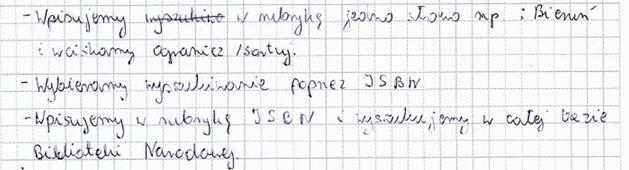 - Wpisujemy wyszukiwa w rubrykę jedno słowo np : Bieruń
i wciskamy ogranicz / sortuj.
- Wybieramy wyszukiwanie poprzez ISBN
- Wpisujemy w rubrykę ISBN i wyszukujemy w całej bazie
Biblioteki Narodowej.